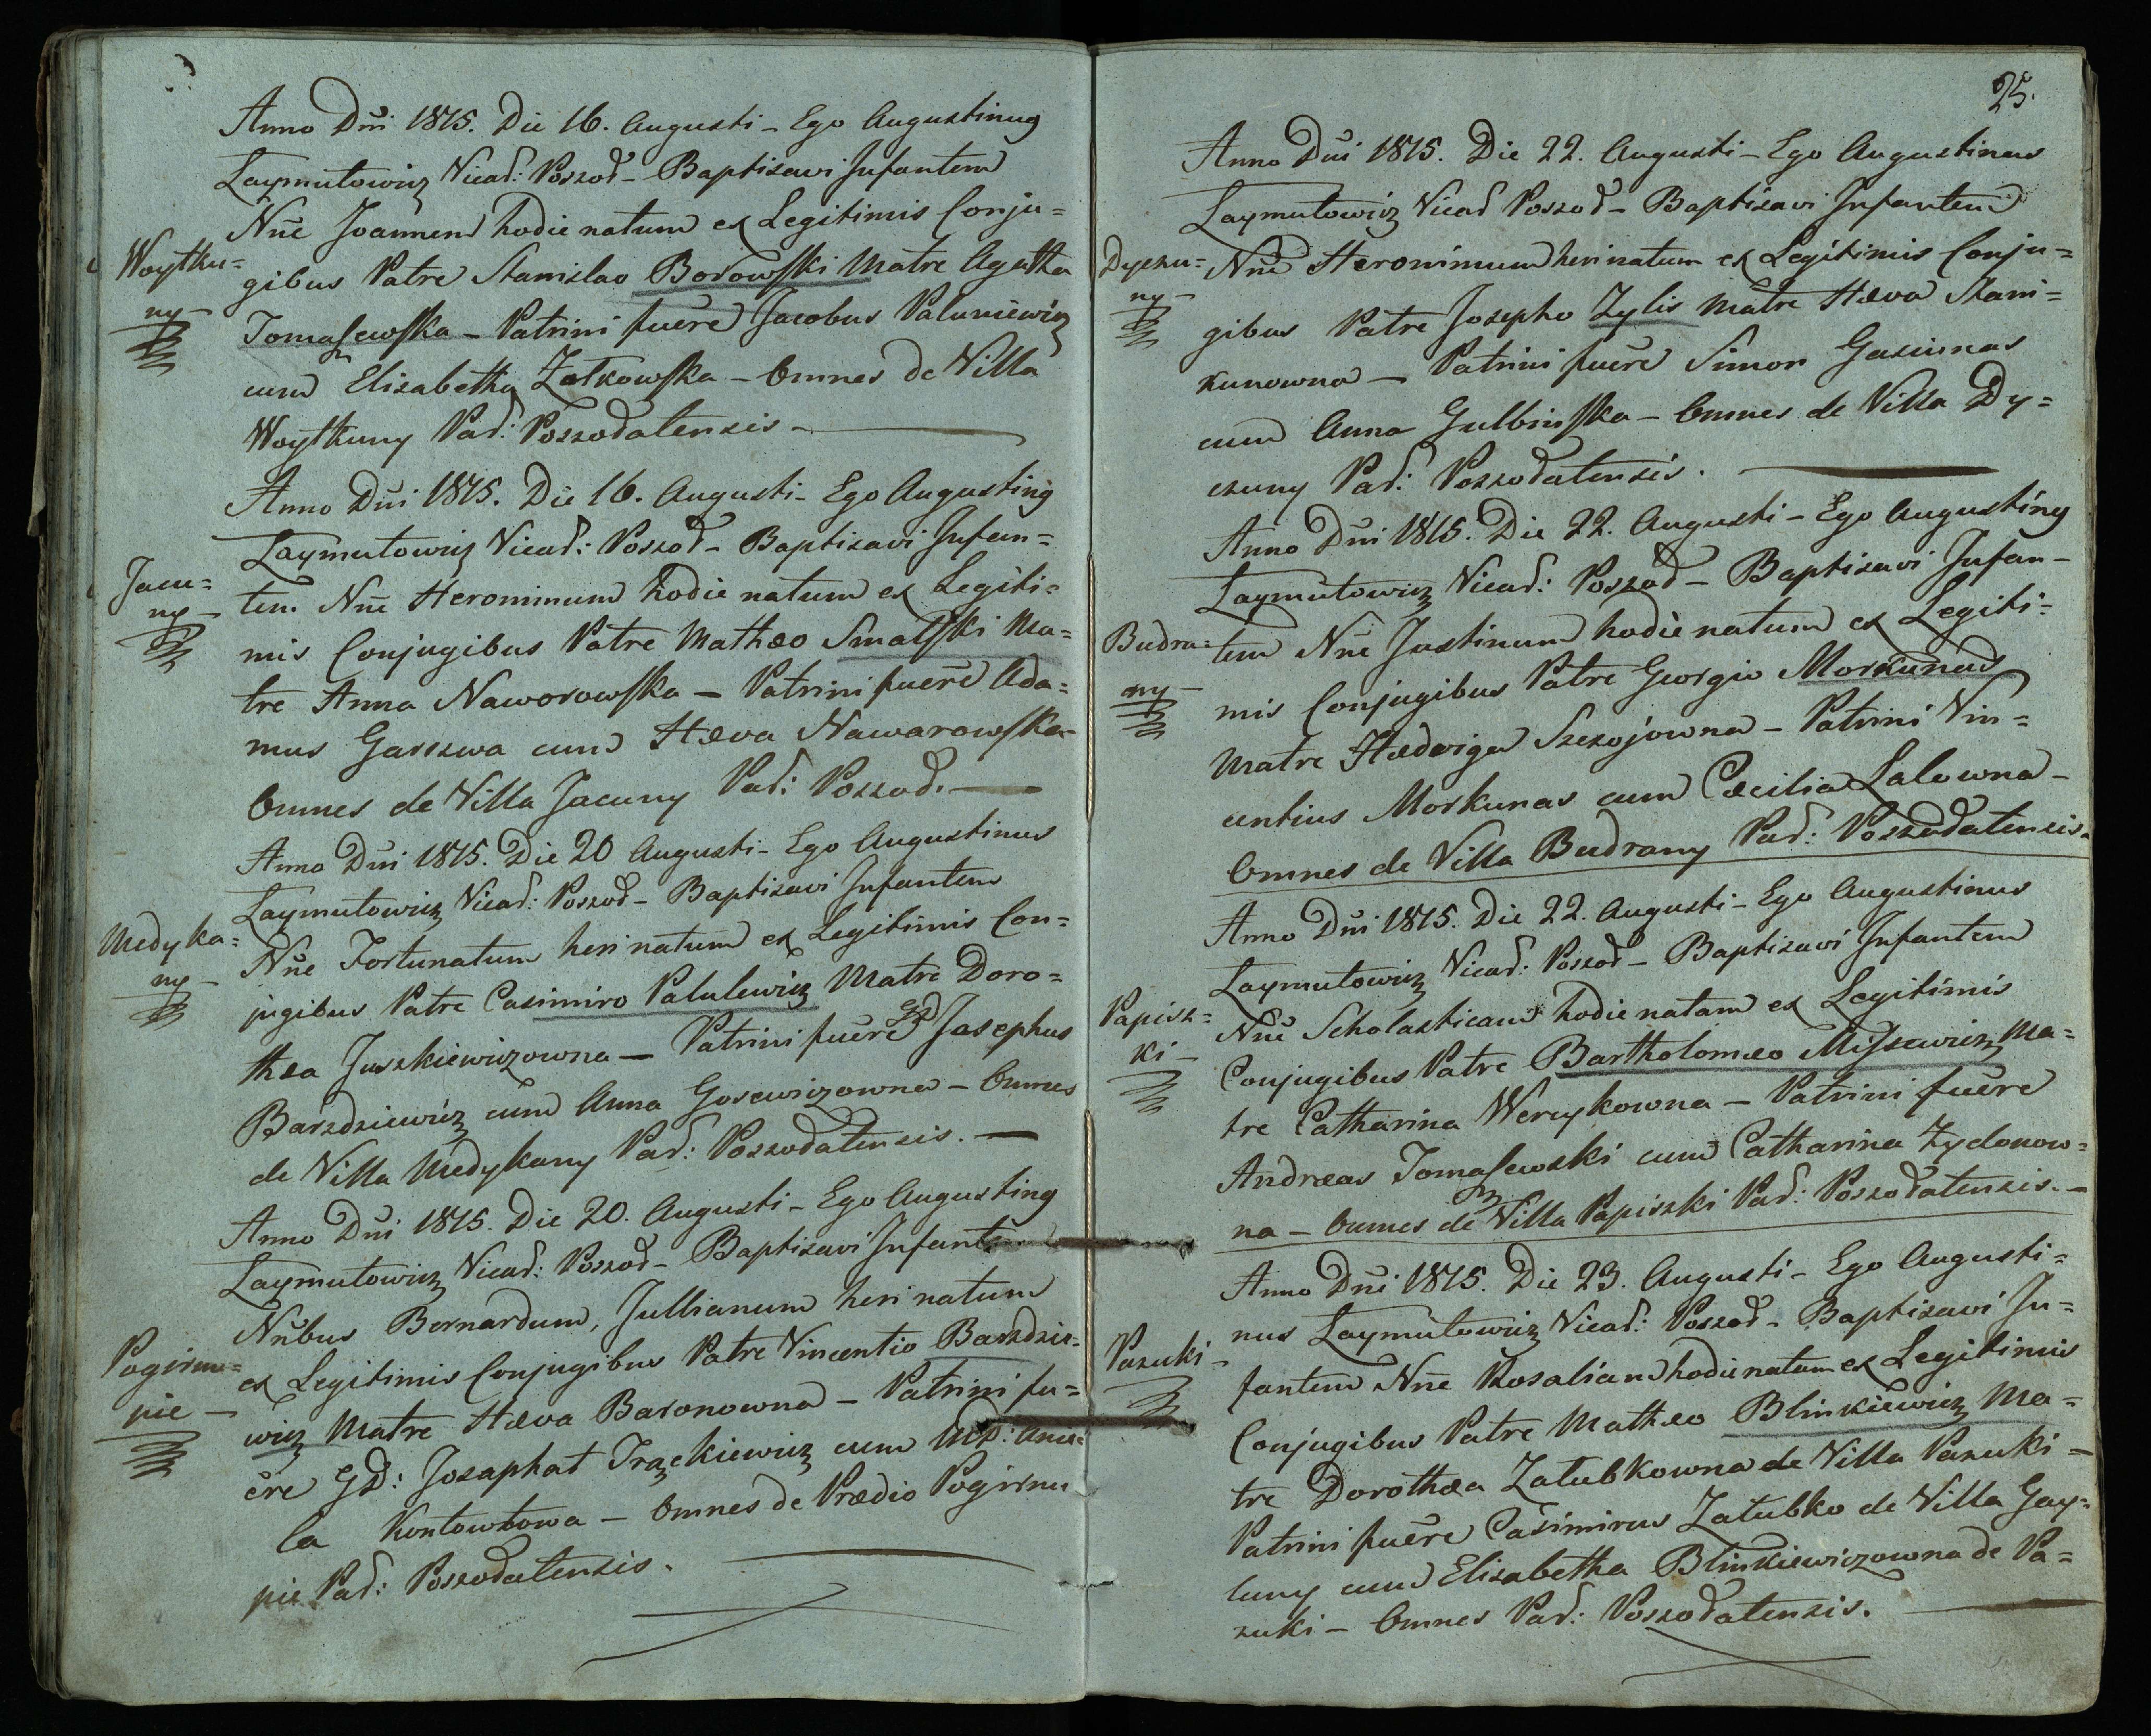 Anno Dni 1815. Die 16. Augusti _ Ego Augustinus
Laymutowicz Vicar: Poszod _ Baptisavi Infantem
Nne Joannem hodie natum ex Legitimis Conju=
Woytku=
ny _
gibus Patre Stanislao Borowski Matre Agatha
Tomaszewska _ Patrini fuere Jacobus Paluniewicz
cum Elisabetha Zotkowska _ Omnes de Villa
Woytkuny Par: Poszodatensis _
Anno Dni 1815. Die 16. Augusti _ Ego Augustinus
Laymutowicz Vicar: Poszod _ Baptisavi Infan=
Jacu=
ny _
tem Nne Heronimum hodie natum ex Legiti=
mis Conjugibus Patre Mathæo Smalski Ma=
tre Anna Naworowska _ Patrini fuere Ada=
mus Garszwa cum Hæva Nawarowska _
Omnes de Villa Jacuny Par: Poszod. _
Anno Dni 1815. Die 20 Augusti _ Ego Augustinus
Laymutowicz Vicar: Poszod _ Baptisavi Infantem
Medyka=
ny _
Nne Fortunatum heri natum ex Legitimis Con=
jugibus Patre Casimiro Palulewicz Matre Doro=
thea Juszkiewiczowna _ Patrini fuere GD Josephus
Barzdziewicz cum Anna Gosewiczowna _ Omnes
de Villa Medykany Par: Poszodatensis. _
Anno Dni 1815. Die 20. Augusti _ Ego Augustinus
Laymutowicz Vicar: Poszod _ Baptisavi Infantem
Nnbus Bernardum, Jullianum heri natum
Pogirnu=
pie _
ex Legitimis Conjugibus Patre Vincentio Barzdzie=
wicz Matre Hæva Baronowna _ Patrini fu=
ere GD: Josaphat Traczkiewicz cum
la Kontowtowa _ Omnes de Prædio Pogirnu
pie Par: Poszodatensis.
25.
Anno Dni 1815. Die 22. Augusti _ Ego Augustinus
Laymutowicz Vicar Poszod _ Baptisavi Infantem
Dyczu=
ny _
Nne Heronimum heri natum ex Legitimis Conju=
gibus Patre Josepho Zylis Matre Hæva Stani=
kunowna _ Patrini fuere Simon Gasiunas
cum Anna Gulbinska _ Omnes de Villa Dy=
czuny Par: Poszodatensis.
Anno Dni 1815. Die 22. Augusti _ Ego Augustinus
Laymutowicz Vicar: Poszod _ Baptisavi Infan=
Budra=
ny _
tem Nne Justinum hodie natum ex Legiti=
mis Conjugibus Patre Georgio Morkunas
Matre Hædwiga Szezojowna _ Patrini Vin=
centius Morkunas cum Cæcilia Lalowna _
Omnes de Villa Budrany Par: Poszodatensis.
Anno Dni 1815. Die 22. Augusti _ Ego Augustinus
Laymutowicz Vicar: Poszod _ Baptisavi Infantem
Papisz=
ki _
Nne Scholasticam hodie natam ex Legitimis
Conjugibus Patre Bartholomæo Misiewicz Ma=
tre Catharina Wercykowna _ Patrini fuere
Andræas Tomaszewski cum Catharina Zydonow=
na _ Omnes de Villa Papiszki Par: Poszodatensis. _
Anno Dni 1815. Die 23. Augusti _ Ego Augusti=
nus Laymutowicz Vicar: Poszod _ Baptisavi In=
Pazuki _
fantem Nne Rosaliam hodie natam ex Legitimis
Conjugibus Patre Mathæo Blinkiewicz Ma=
tre Dorothæa Zatubkowna de Villa Pazuki _
Patrini fuere Casimirus Zatubko de Villa Gay=
luny cum Elisabetha Blinkiewiczowna de Pa=
zuki _ Omnes Par: Poszodatensis.